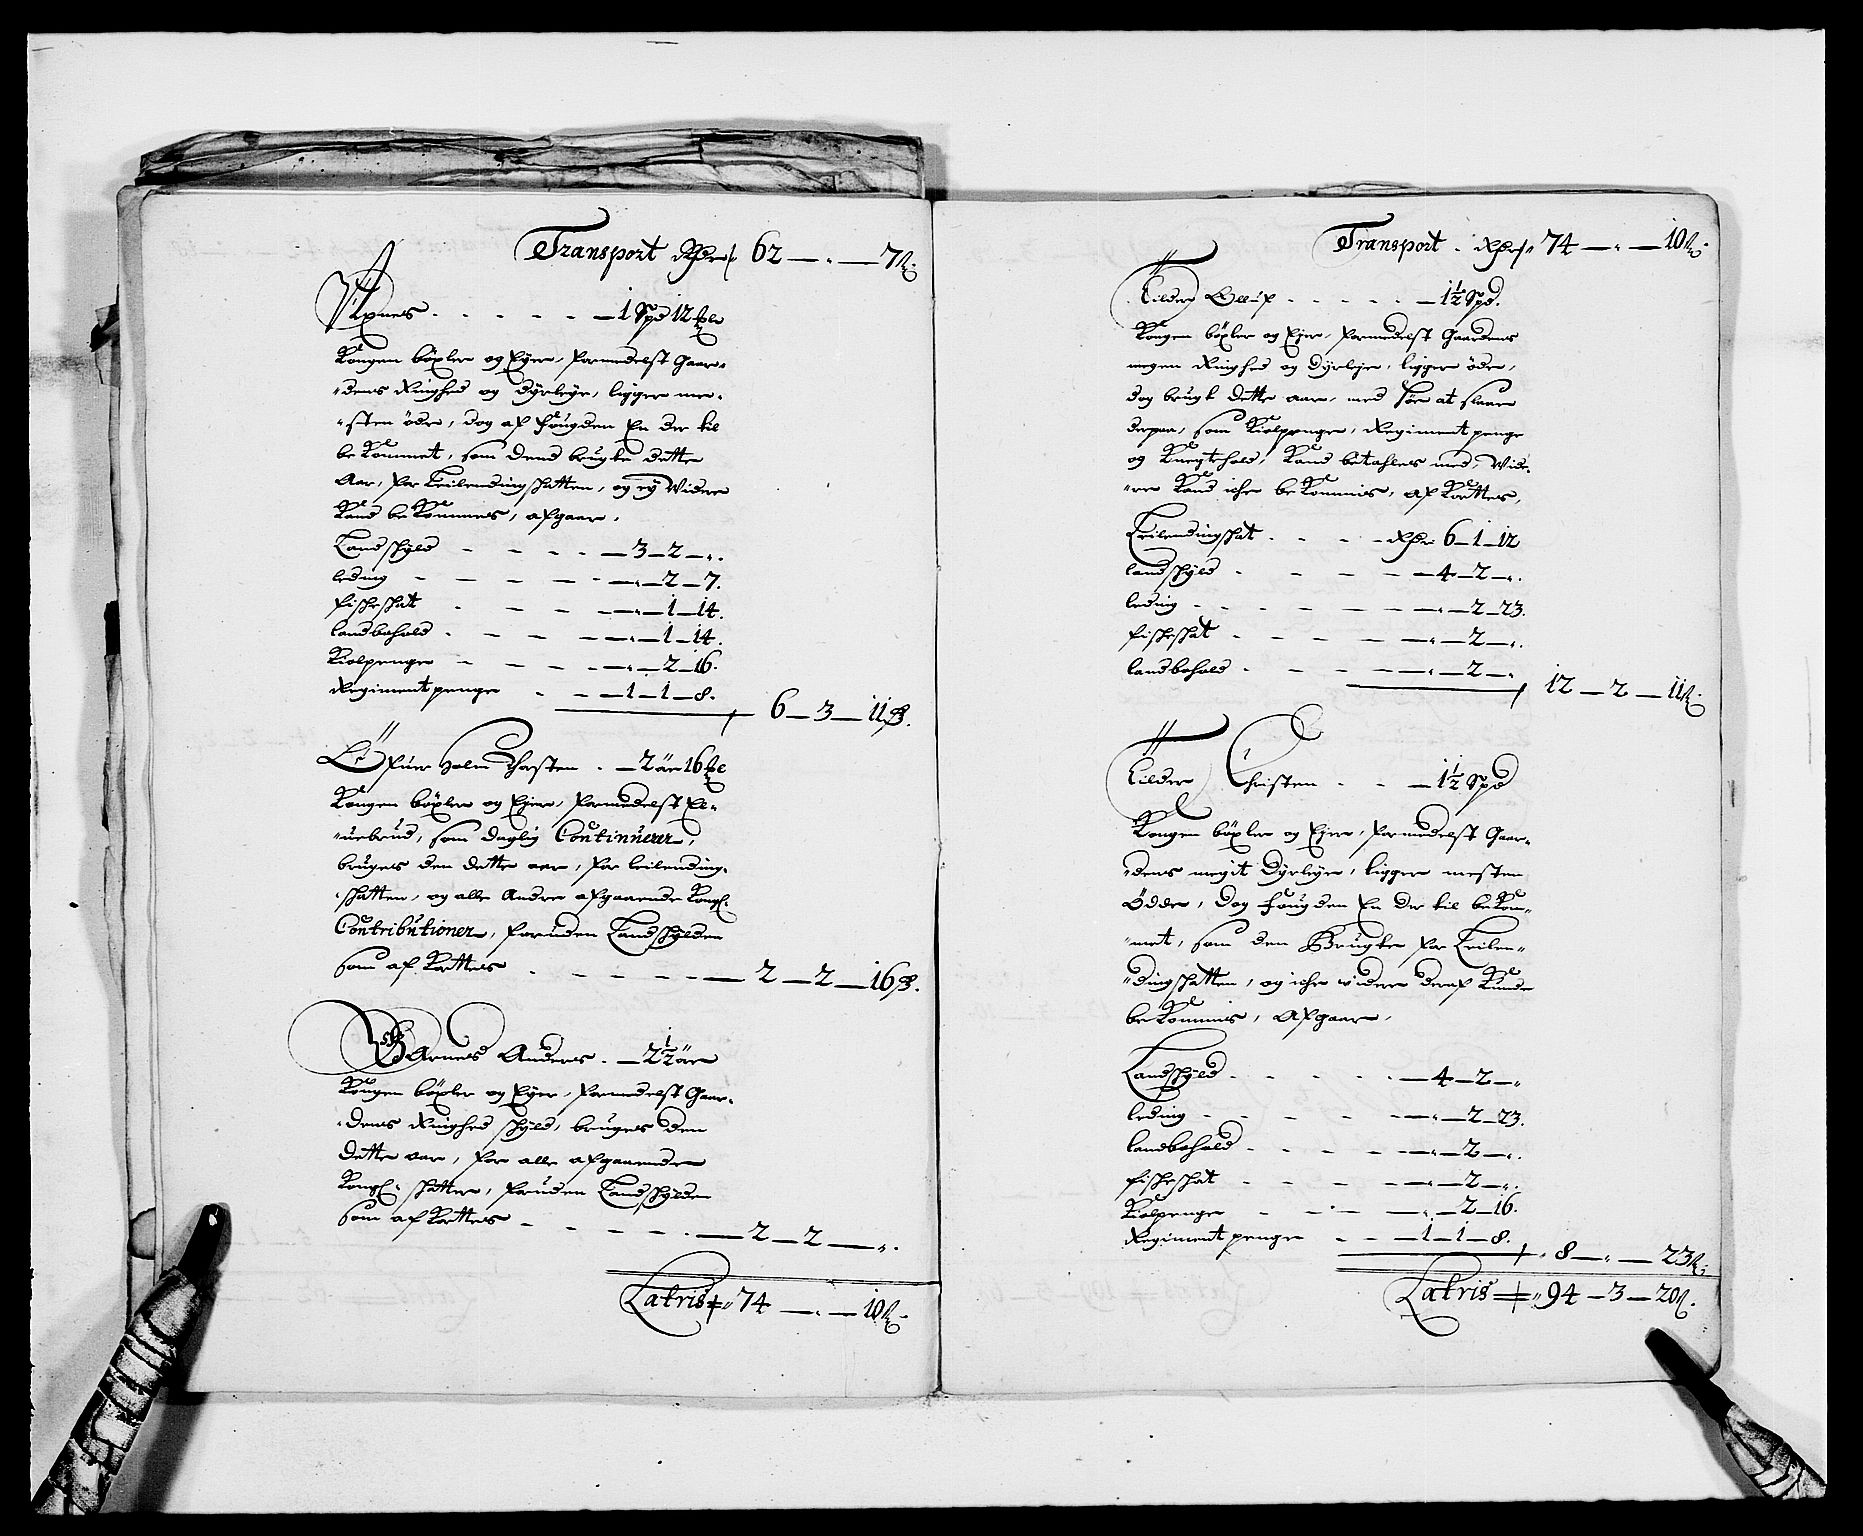 Transport Rdr 62 — " — 7 ß
Vixnes . . . . . . — 1 Spd 12 Mle
Kongen böxler og Eyer, formedelst Gaar-
dens Ringhed og Dyrleye, ligger me-
sten öde, dog af fougden En der til
bekommet, som dend brugte dette
Aar, for Leilendingskatten, og ey Widere
Kand bekommes, afgaar,
Landskyld — — — — 3 — 2 — "
leding — — — — " — 2 — 7.
fiskeskat . — — — " — 1 — 14.
landbohold . — — — " — 1 — 14.
Kiolpenge — — — — " — 2 — 16.
Regimentpenge . — — 1 — 1 — 8.
6 — 3 — 11 ß.
Holm Thorsten . — 2 ör 16 Mle
Kongen böxler og Ejer, formedelst El-
uebrud, som daglig Continuerer,
bruges den dette aar, for leilending-
skatten, og alle Andre afgaaende Kongl:
Contributioner, foruden Landskylden
som afKortes . — — — — 2 — 2 — 16 ß.
Anders . — 2½ öre
Kongen böxler og Eyer, formedelst Gaar-
dens Ringhed skyld, bruges den
dette aar, for alle afgaaende
Kongl: skatter, foruden Landskylden
som afKortes — — — — 2 — 2 — "
Latris 74 — " — 10 ß.
Transport . Rdr 74 — " — 10 ß.
Tilder Oluf . . . . . — 1½ Spd.
Kongen böxler og Ejer, formedelst Gaardens
megen Ringhed og Dyrleje, ligger öde,
dog brugt dette aar, med at slaae
derpaa, som Kiolpenge, Regimentpenge
og Knegthold, Kand betahles med, Wide-
re Kand iche bekommis, afKortes,
Leilendingskat . . . . Rdr 6 — 1 — 12
landskyld . — — — 4 — 2 — "
leding . — — — — " — 2 — 23.
fiskeskat . — — — " — 2 — "
landbohold . — — — " — 2 — "
12 — 2 — 11 ß.
Tilder Christen . . . — 1½ Spd
Kongen böxler og Ejer, formedelst Gaar-
dens megit Dyrleye, ligger mesten
Ödde, dog fougden En der til bekom-
met, som den Brugte for Leilen-
dingskatten, og iche videre deraf Kunde
bekommis, Afgaar,
Landskyld . . . . . — 4 — 2 — "
leding — — — — " — 2 — 23.
landbohold . . . . — " — 2 — "
fiskeskat . — — — " — 2 — "
Kiolpenge — — — " — 2 — 16.
Regiment penge . — — 1 — 1 — 8.
8 — " — 23 ß.
Latris 94 — 3 — 20 ß.